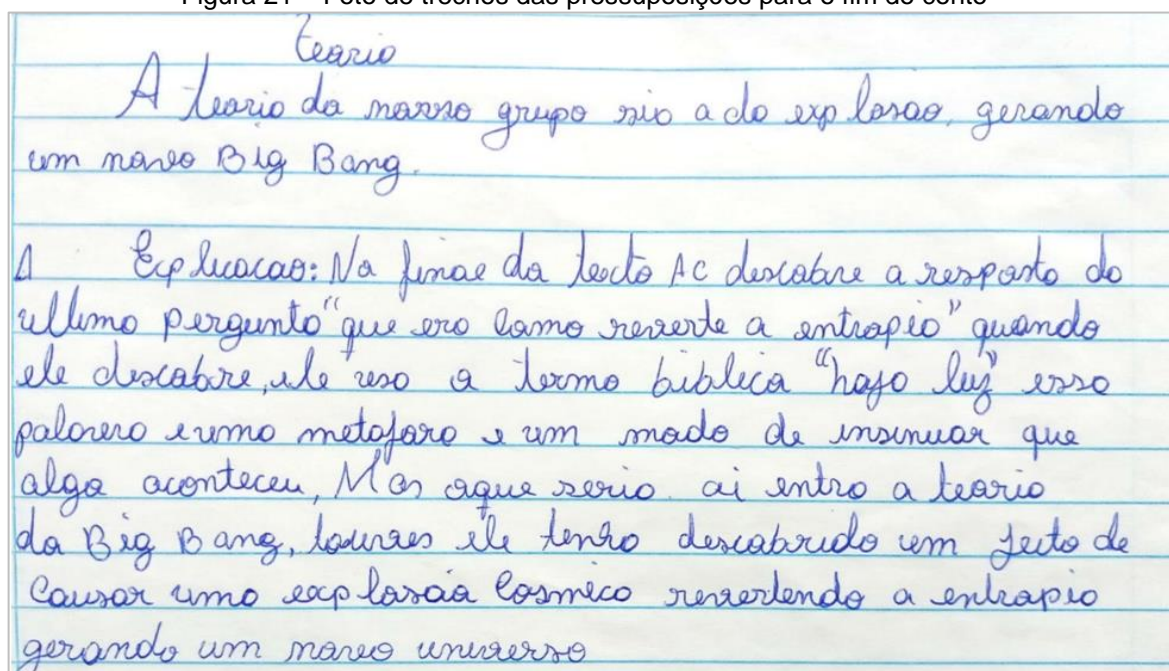 Figura 21 – Foto de trechos das pressuposições para o fim do conto
Teoria
A teoria do nosso grupo sio a do explosao, gerando
um novo Big Bang.
Explicacao: No final do texto AC descobre a resposta do
ultimo pergunta "que era como reverte a entropia" quando
ele descobre, ele usa o termo biblico "haja luz" essa
palavra e uma metafora e um modo de insinuar que
algo aconteceu, Mas oque seria. ai entra a teoria
do Big Bang, talvez ele tenha descobrido um jeito de
Causar uma explosão Cosmica revertendo a entropia
gerando um novo universo